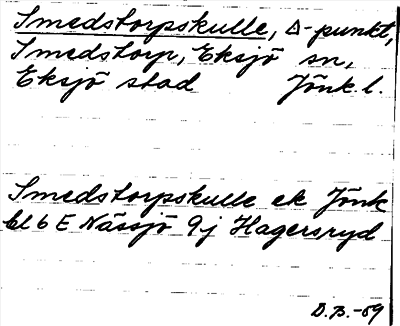 Smedstorpskulle, Δ-punkt,
Smedstorp, Eksjö sn,
Eksjö stad Jönk l.
Smedstorpskulle ek Jönk
bl 6 E Nässjö 9j Hagersryd
D.B.-59